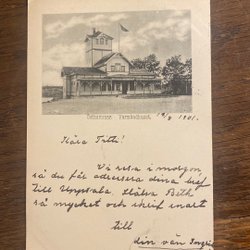 Östhammar. Varmbadhuset.
1901.
Kära Titti!
Vi resa i morgon
så du får adressera dina bref
till Uppsala. Hälsa Beth
så mycket och skrif snart
till
din vän Ingrid